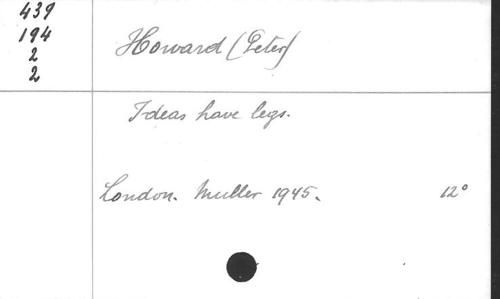 439
194
2
2
Howard (Peter)
Ideas have legs.
London. Muller 1945. 12°